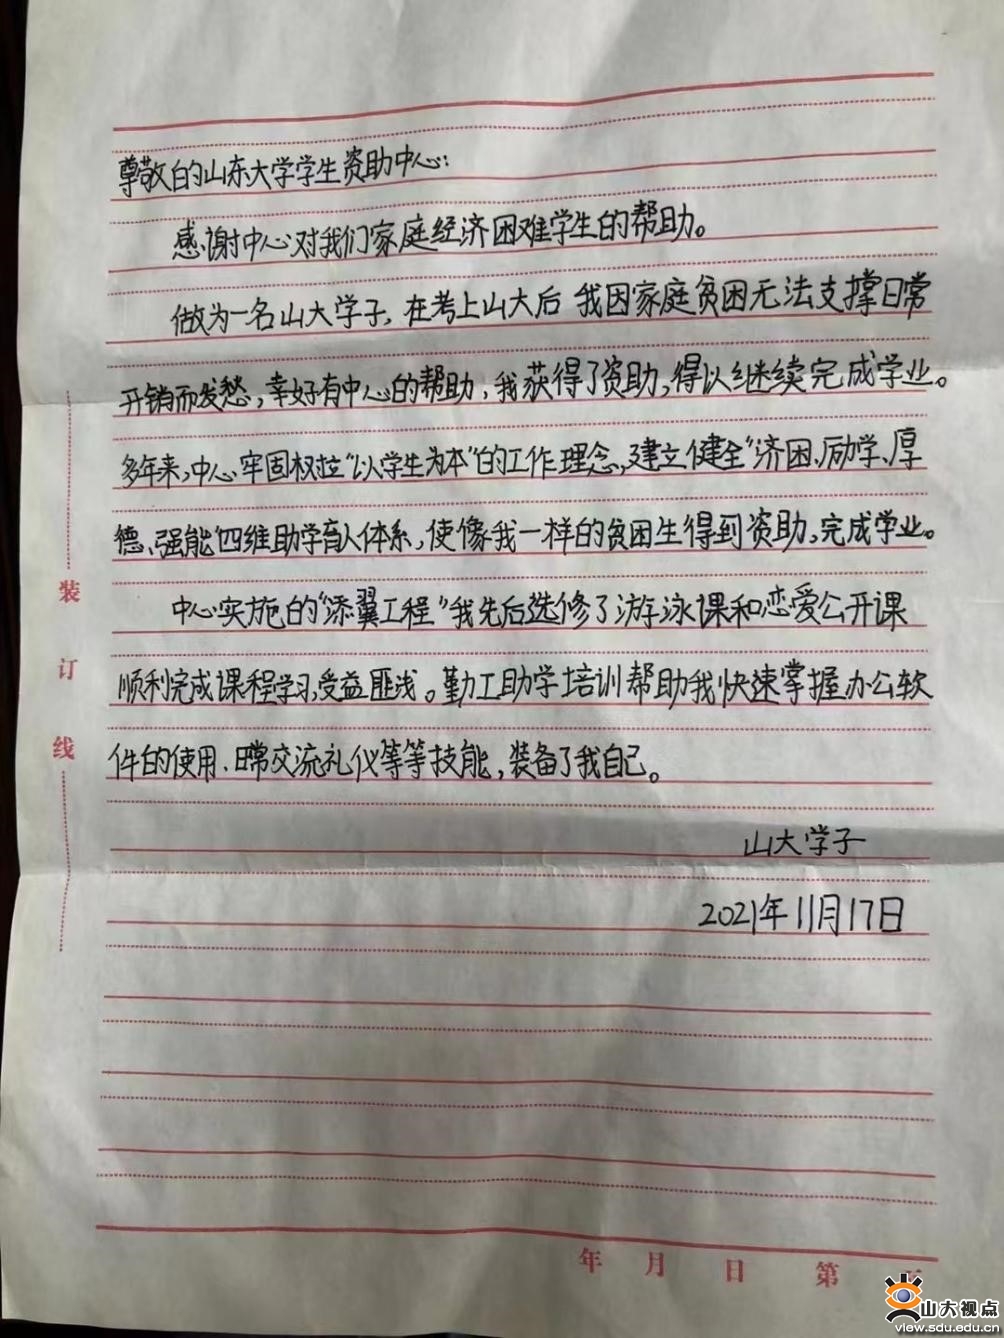 尊敬的山东大学学生资助中心:
感谢中心对我们家庭经济困难学生的帮助。
做为一名山大学子,在考上山大后 我因家庭贫困无法支撑日常
开销而发愁,幸好有中心的帮助,我获得了资助,得以继续完成学业。
多年来,中心牢固权拉“以学生为本”的工作理念,建立健全“济困、励学、厚
德、强能”四维助学育人体系,使像我一样的贫困生得到资助,完成学业。
中心实施的“添翼工程”我先后选修了游泳课和恋爱公开课
顺利完成课程学习,受益匪浅。勤工助学培训帮助我快速掌握办公软
件的使用、日常交流礼仪等等技能,装备了我自己。
山大学子
2021年11月17日
装
订
线
年 月 日 第
山大视点
view.sdu.edu.cn